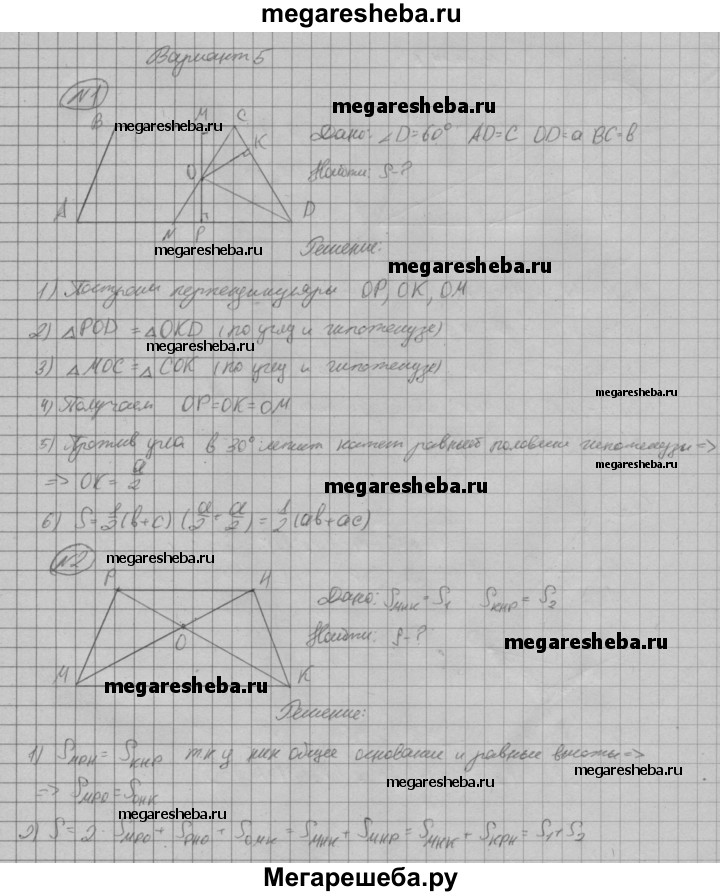 megaresheba.ru
Вариант 5
№1
megaresheba.ru
B M C K O A N P D
megaresheba.ru
Дано: ∠D=60° AD=C OD=a BC=в
Найти: S-?
megaresheba.ru
Решение:
megaresheba.ru
1) Построим перпендикуляры OP, OK, OM
2) △POD = △OKD (по углу и гипотенузе)
megaresheba.ru
3) △MOC = △COK (по углу и гипотенузе)
megaresheba.ru
4) Получаем OP=OK=OM
5) Против угла в 30° лежит катет равный половине гипотенузы =>
megaresheba.ru
=> OK = a/2
megaresheba.ru
6) S = 1/2 (в+c) (a/2 + a/2) = 1/2 (ав+ac)
№2
megaresheba.ru
P H O M K
Дано: S MHK = S1 S KHP = S2
Найти: S-?
megaresheba.ru
megaresheba.ru
Решение:
1) S MPH = S KHP т к у них общее основание и равные высоты =>
megaresheba.ru
megaresheba.ru
=> S MPO = S OHK
megaresheba.ru
2) S = 2 · S MPO + S PHO + S OMK = S MHK + S MHP = S MHK + S KPH = S1 + S2
megaresheba.ru
Мегарешеба.ру